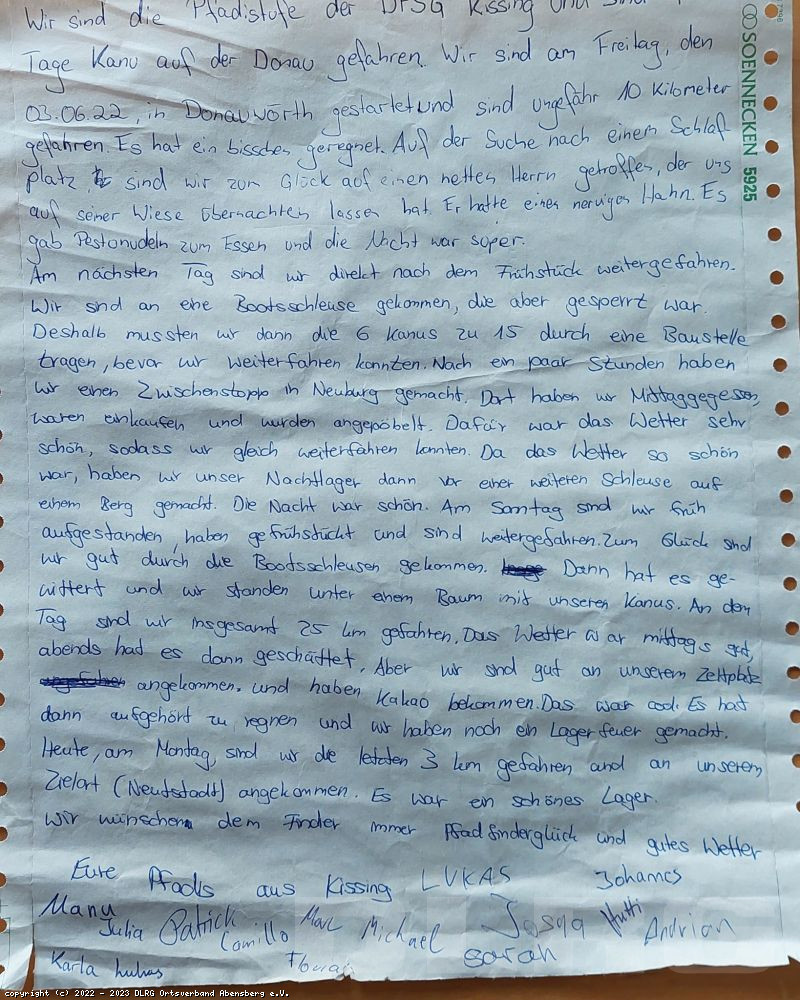 Wir sind die Pfadistufe der DPSG Kissing und sind
Tage Kanu auf der Donau gefahren. Wir sind am Freitag, den
03.06.22, in Donauwörth gestartet und sind ungefähr 10 Kilometer
gefahren. Es hat ein bisschen geregnet. Auf der Suche nach einem Schlaf
platz sind wir zum Glück auf einen netten Herrn getroffen, der uns
auf seiner Wiese übernachten lassen hat. Er hatte einen nervigen Hahn. Es
gab Pestonudeln zum Essen und die Nacht war super.
Am nächsten Tag sind wir direkt nach dem Frühstück weitergefahren.
Wir sind an eine Bootsschleuse gekommen, die aber gesperrt war.
Deshalb mussten wir dann die 6 Kanus zu 15 durch eine Baustelle
tragen, bevor wir weiterfahren konnten. Nach ein paar Stunden haben
wir einen Zwischenstopp in Neuburg gemacht. Dort haben wir Mittaggegessen,
waren einkaufen und wurden angepöbelt. Dafür war das Wetter sehr
schön, sodass wir gleich weiterfahren konnten. Da das Wetter so schön
war, haben wir unser Nachtlager dann vor einer weiteren Schleuse auf
einem Berg gemacht. Die Nacht war schön. Am Sonntag sind wir früh
aufgestanden, haben gefrühstückt und sind weitergefahren. Zum Glück sind
wir gut durch die Bootsschleusen gekommen. Dann hat es ge-
wittert und wir standen unter einem Baum mit unseren Kanus. An dem
Tag sind wir insgesamt 25 km gefahren. Das Wetter war mittags gut,
abends hat es dann geschüttet. Aber wir sind gut an unserem Zeltplatz
angekommen. und haben Kakao bekommen. Das war cool. Es hat
dann aufgehört zu regnen und wir haben noch ein Lagerfeuer gemacht.
Heute, am Montag, sind wir die letzten 3 km gefahren und an unserem
Zielort (Neustadt) angekommen. Es war ein schönes Lager.
Wir wünschen dem Finder immer Pfadfinderglück und gutes Wetter
Eure Pfadis aus Kissing LUKAS Johannes
Manu Julia Patrick Camillo Marc Michael Josua Hutti Andrian
Karla Lukas Florian Sarah
SOENNECKEN 5925
copyright (c) 2022 - 2023 DLRG Ortsverband Abensberg e.V.